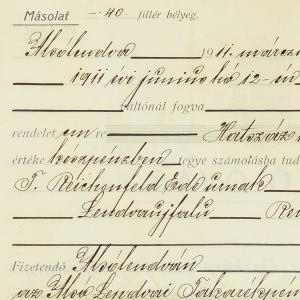 Másolat -40- fillér bélyeg.
Alsólendva 1911. márczi
1911 évi junius hó 12-én
váltónál fogva
rendelet em re Hatszáz
értéke készpénzben tegye számolásba tud
T. Reichenfeld Ede úrnak
Lendvaujfalu Ren
Fizetendő Alsólendván
az Alsó Lendvai Takarékpén